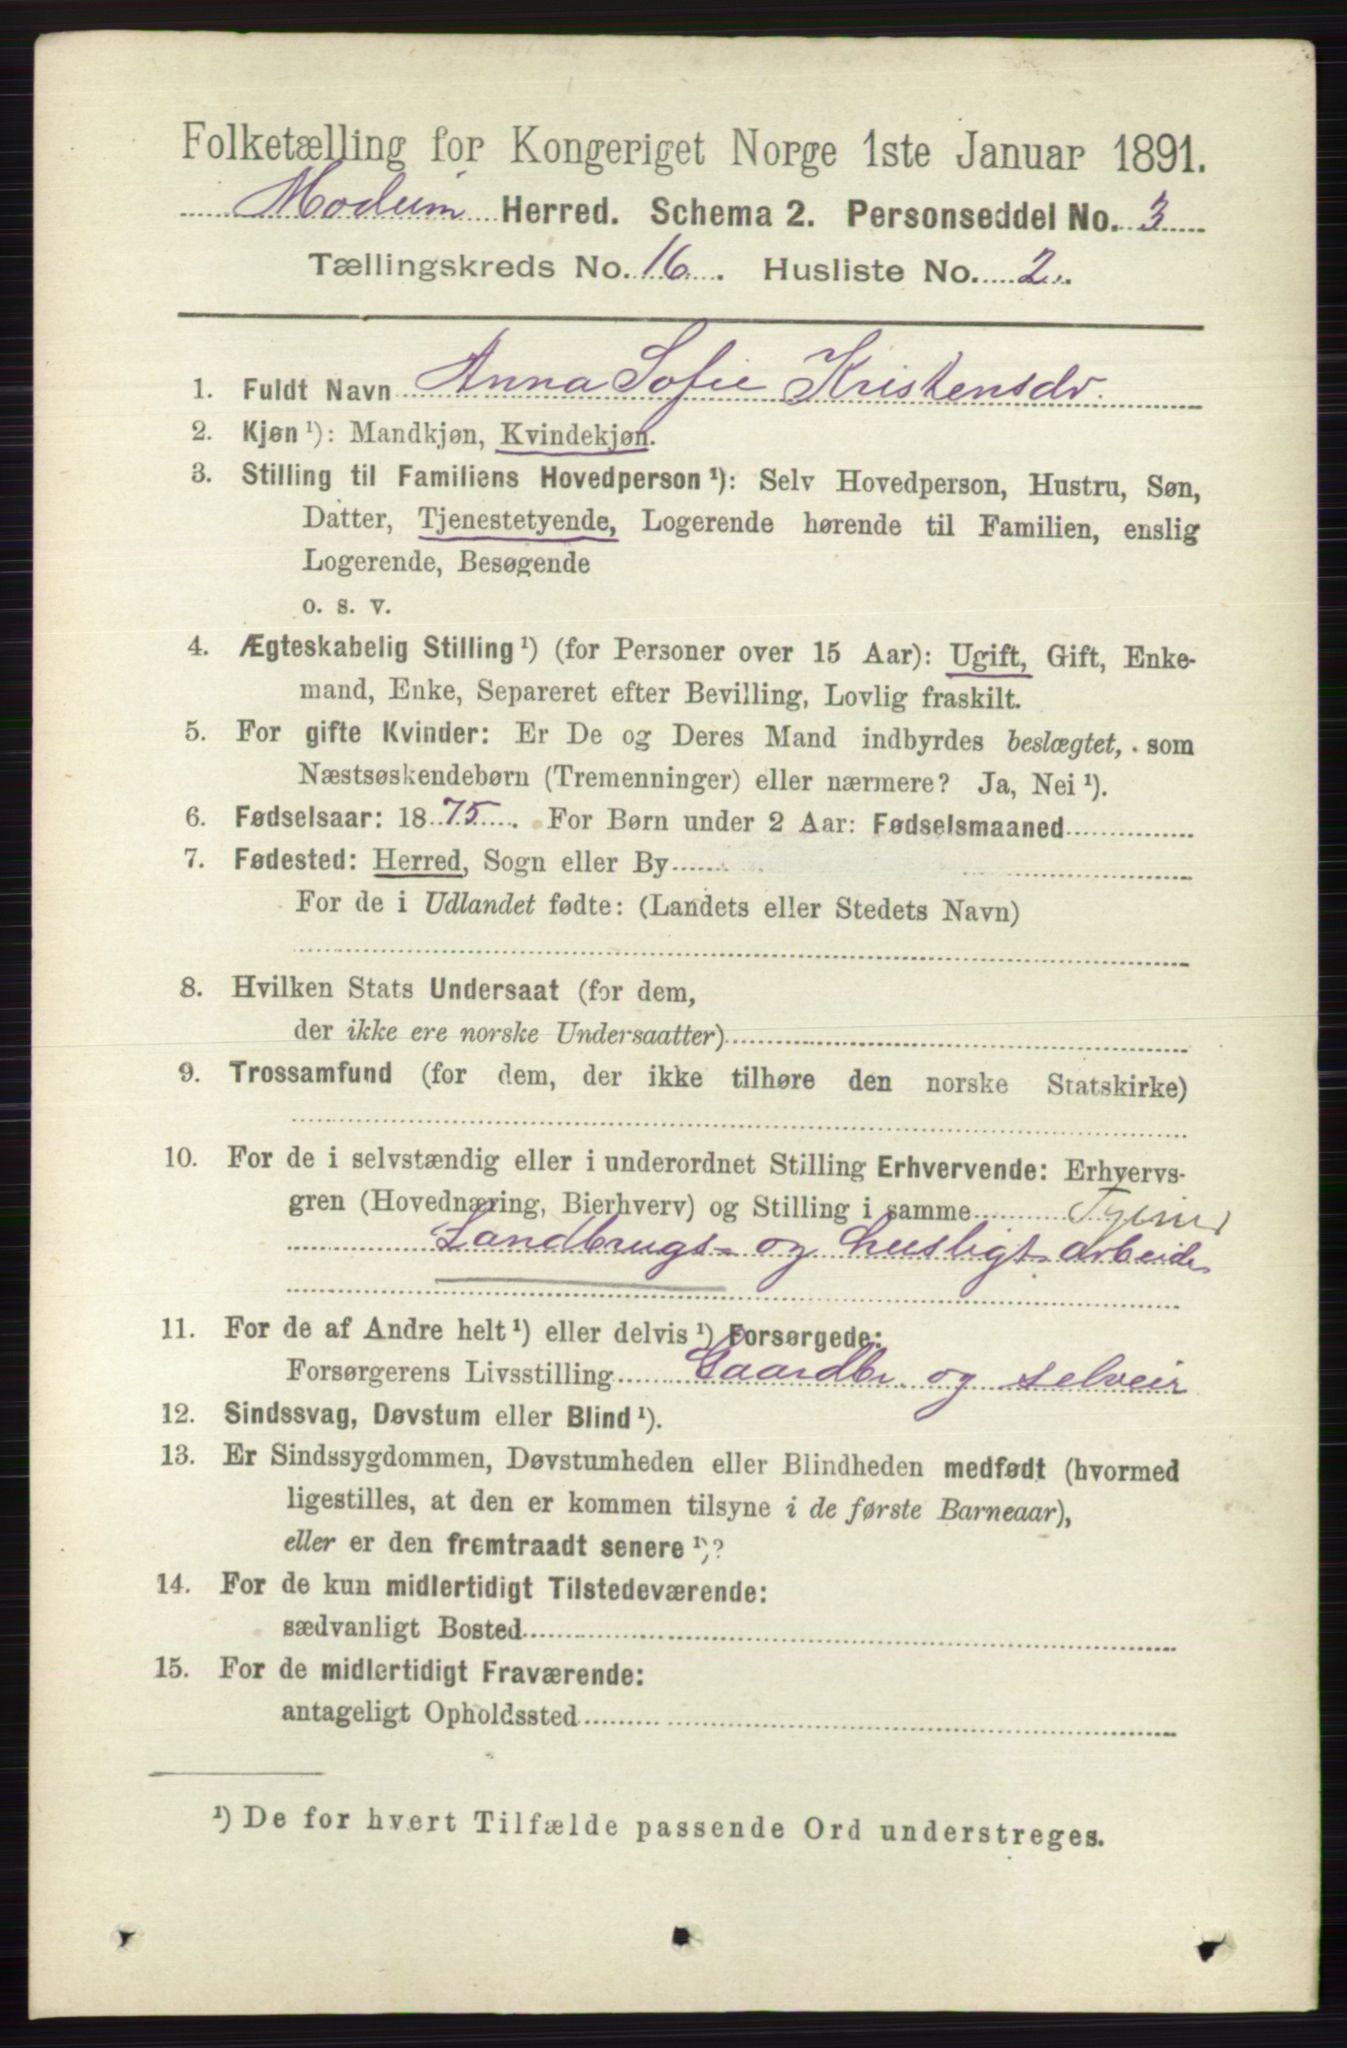 Folketælling for Kongeriget Norge 1ste Januar 1891.
Modum Herred. Schema 2. Personseddel No. 3
Tællingskreds No. 16. Husliste No. 2.
1. Fuldt Navn Anna Sofie Kristensdr.
2. Kjøn ¹): Mandkjøn, Kvindekjøn.
3. Stilling til Familiens Hovedperson ¹): Selv Hovedperson, Hustru, Søn,
Datter, Tjenestetyende, Logerende hørende til Familien, enslig
Logerende, Besøgende
o. s. v.
4. Ægteskabelig Stilling ¹) (for Personer over 15 Aar): Ugift, Gift, Enke-
mand, Enke, Separeret efter Bevilling, Lovlig fraskilt.
5. For gifte Kvinder: Er De og Deres Mand indbyrdes beslægtet, som
Næstsøskendebørn (Tremenninger) eller nærmere? Ja, Nei ¹).
6. Fødselsaar: 1875. For Børn under 2 Aar: Fødselsmaaned
7. Fødested: Herred, Sogn eller By
For de i Udlandet fødte: (Landets eller Stedets Navn)
8. Hvilken Stats Undersaat (for dem,
der ikke ere norske Undersaatter)
9. Trossamfund (for dem, der ikke tilhøre den norske Statskirke)
10. For de i selvstændig eller i underordnet Stilling Erhvervende: Erhvervs-
gren (Hovednæring, Bierhverv) og Stilling i samme
Landbrugs- og husligt arbeide
11. For de af Andre helt ¹) eller delvis ¹) Forsørgede:
Forsørgerens Livsstilling Gaardbr. og selveir
12. Sindssvag, Døvstum eller Blind ¹).
13. Er Sindssygdommen, Døvstumheden eller Blindheden medfødt (hvormed
ligestilles, at den er kommen tilsyne i de første Barneaar),
eller er den fremtraadt senere ¹)?
14. For de kun midlertidigt Tilstedeværende:
sædvanligt Bosted
15. For de midlertidigt Fraværende:
antageligt Opholdssted
¹) De for hvert Tilfælde passende Ord understreges.